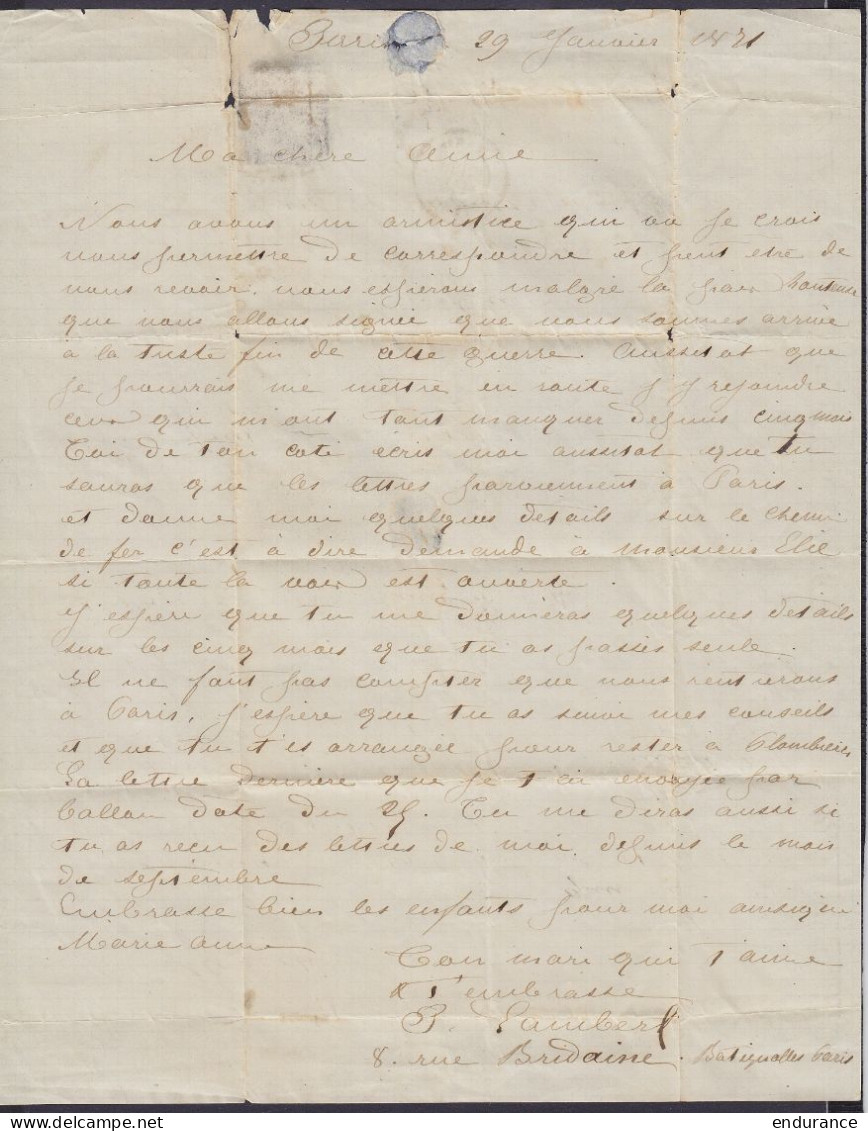 Paris 29 Janvier 1871
Ma chère Amie
Nous avons un armistice qui va je crois
nous permettre de correspondre et peut etre de
nous revoir. nous espérons malgré la paix honteuse
que nous allons signée que nous sommes arrivé
à la triste fin de cette guerre. Aussitot que
je pourrais me mettre en route j'y rejoindre
ceux qui m'ont tant manquer depuis cinq mois
Toi de ton coté ecris moi aussitot que tu
sauras que les lettres parviennent à Paris.
et donne moi quelques détails sur le chemin
de fer c'est à dire demande à Monsieur Elie
si toute la voix est ouverte.
J'espère que tu me donneras quelques détails
sur les cinq mois que tu as passés seule.
Il ne faut pas compter que nous rentrerons
à Paris, j'espère que tu as suivi mes conseils
et que tu t'es arrangée pour rester à Plombières
La lettre dernière que je t'ai envoyée par
ballon date du 25. Tu me diras aussi si
tu as recu des lettres de moi depuis le mois
de septembre
Embrasse bien les enfants pour moi ainsi que
Marie anne
Ton mari qui t'aime
& t'embrasse
B. Lambert
8. rue Bridaine. Batignolles Paris
endurance